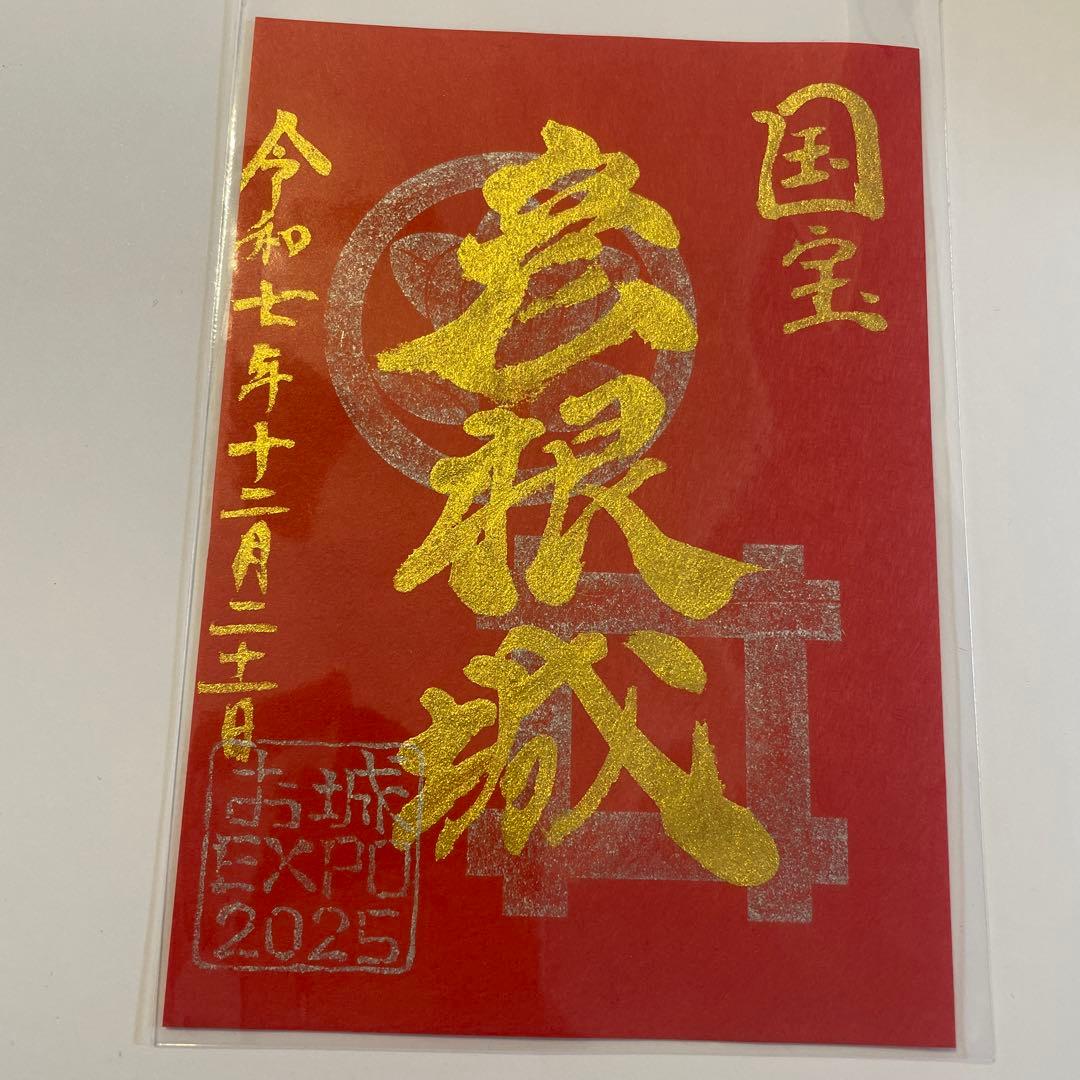 国宝
彦根城
令和七年十二月二十一日
お城
EXPO
2025